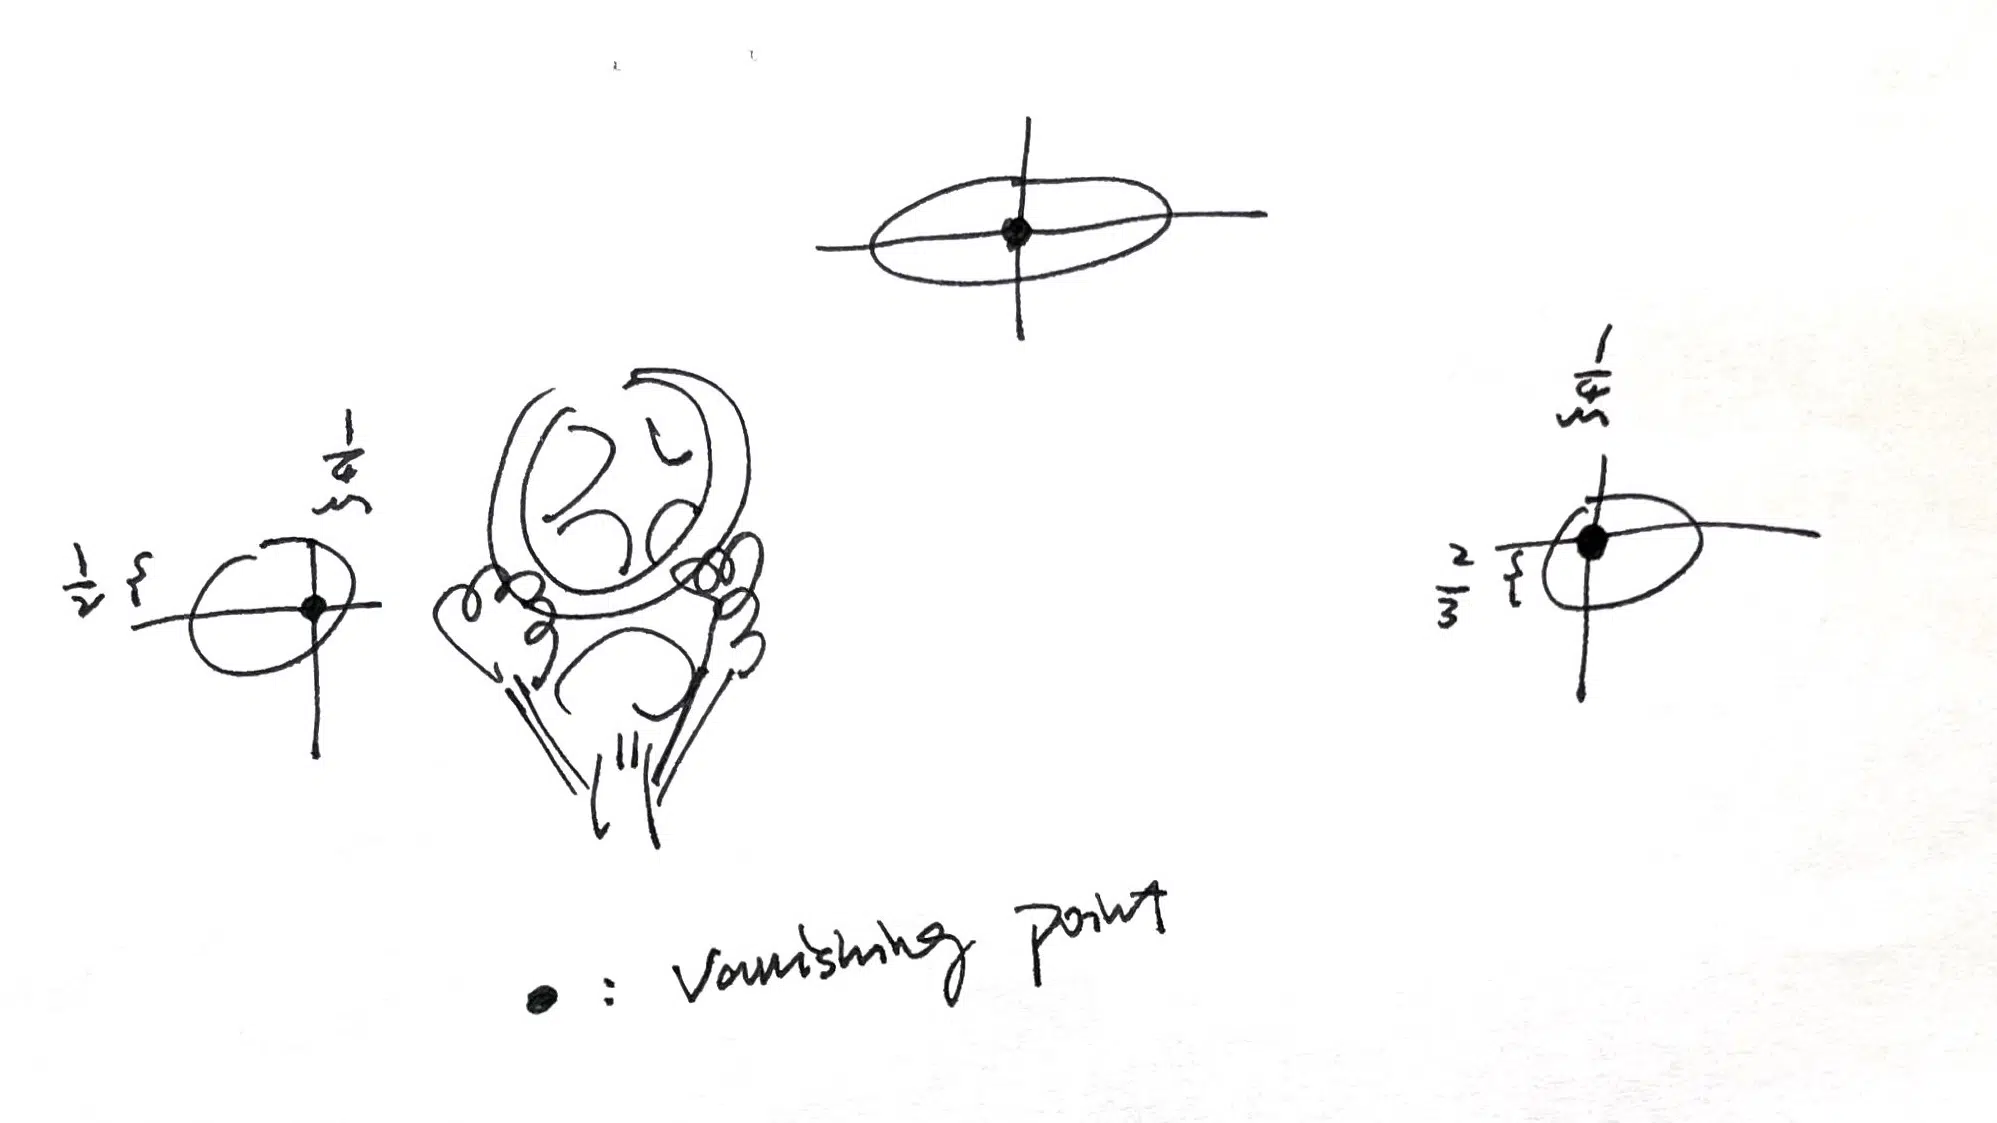 1/4
1/4
1/2
2/3
● : Vanishing point